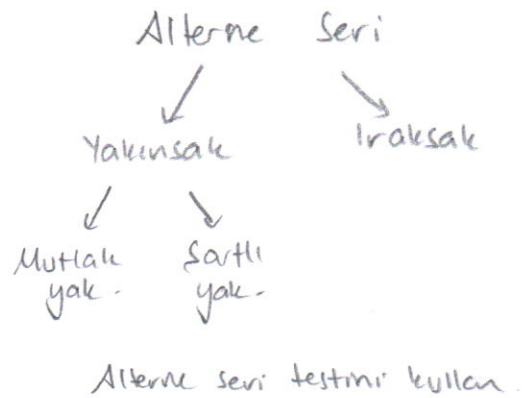 Alterne Seri
Yakınsak Iraksak
Mutlak Şartlı
yak. yak.
Alterne seri testini kullan.